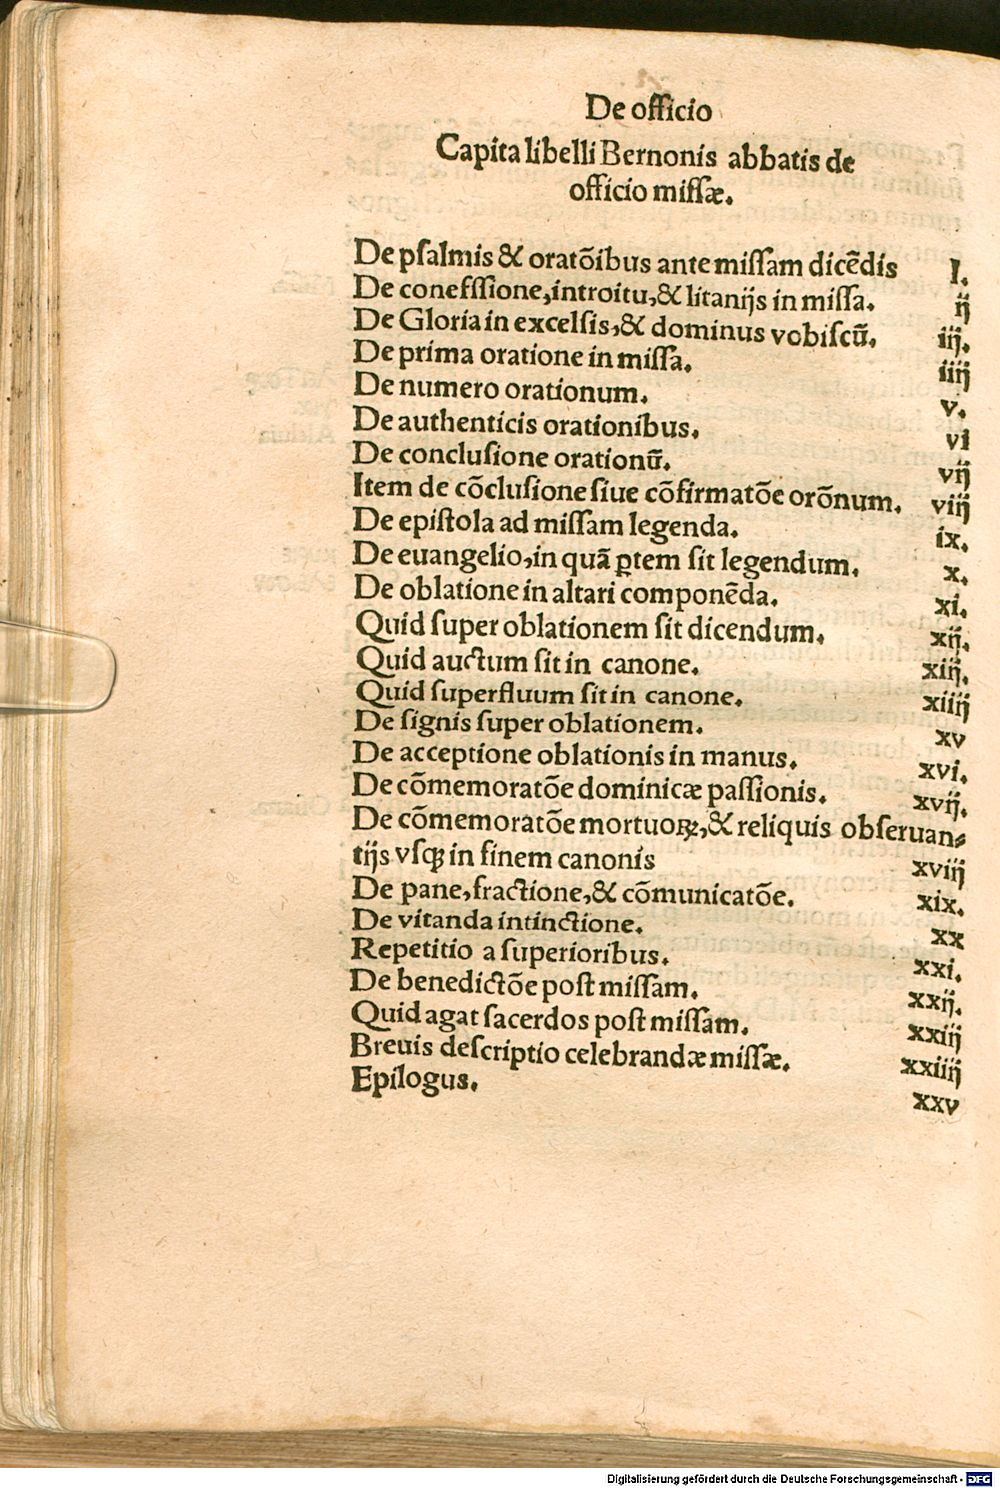 De officio
Capita libelli Bernonis abbatis de
officio missæ.
De psalmis & oratõibus ante missam dicẽdis I.
De conefssione, introitu, & litanijs in missa. ij
De Gloria in excelsis, & dominus vobiscũ. iij.
De prima oratione in missa. iiij
De numero orationum. v.
De authenticis orationibus. vi
De conclusione orationũ. vij
Item de cõclusione siue cõfirmatõe orõnum. viij
De epistola ad missam legenda. ix.
De euangelio, in quã ꝑtem sit legendum. x.
De oblatione in altari componẽda. xi.
Quid super oblationem sit dicendum. xij.
Quid auctum sit in canone. xiij.
Quid superfluum sit in canone. xiiij
De signis super oblationem. xv
De acceptione oblationis in manus. xvi.
De cõmemoratõe dominicæ passionis. xvij.
De cõmemoratõe mortuoꝝ, & reliquis obseruan-
tijs vsqꝫ in finem canonis xviij
De pane, fractione, & cõmunicatõe. xix.
De vitanda intinctione. xx
Repetitio a superioribus. xxi.
De benedictõe post missam. xxij.
Quid agat sacerdos post missam. xxiij
Breuis descriptio celebrandæ missæ. xxiiij
Epilogus. xxv
Digitalisierung gefördert durch die Deutsche Forschungsgemeinschaft - DFG